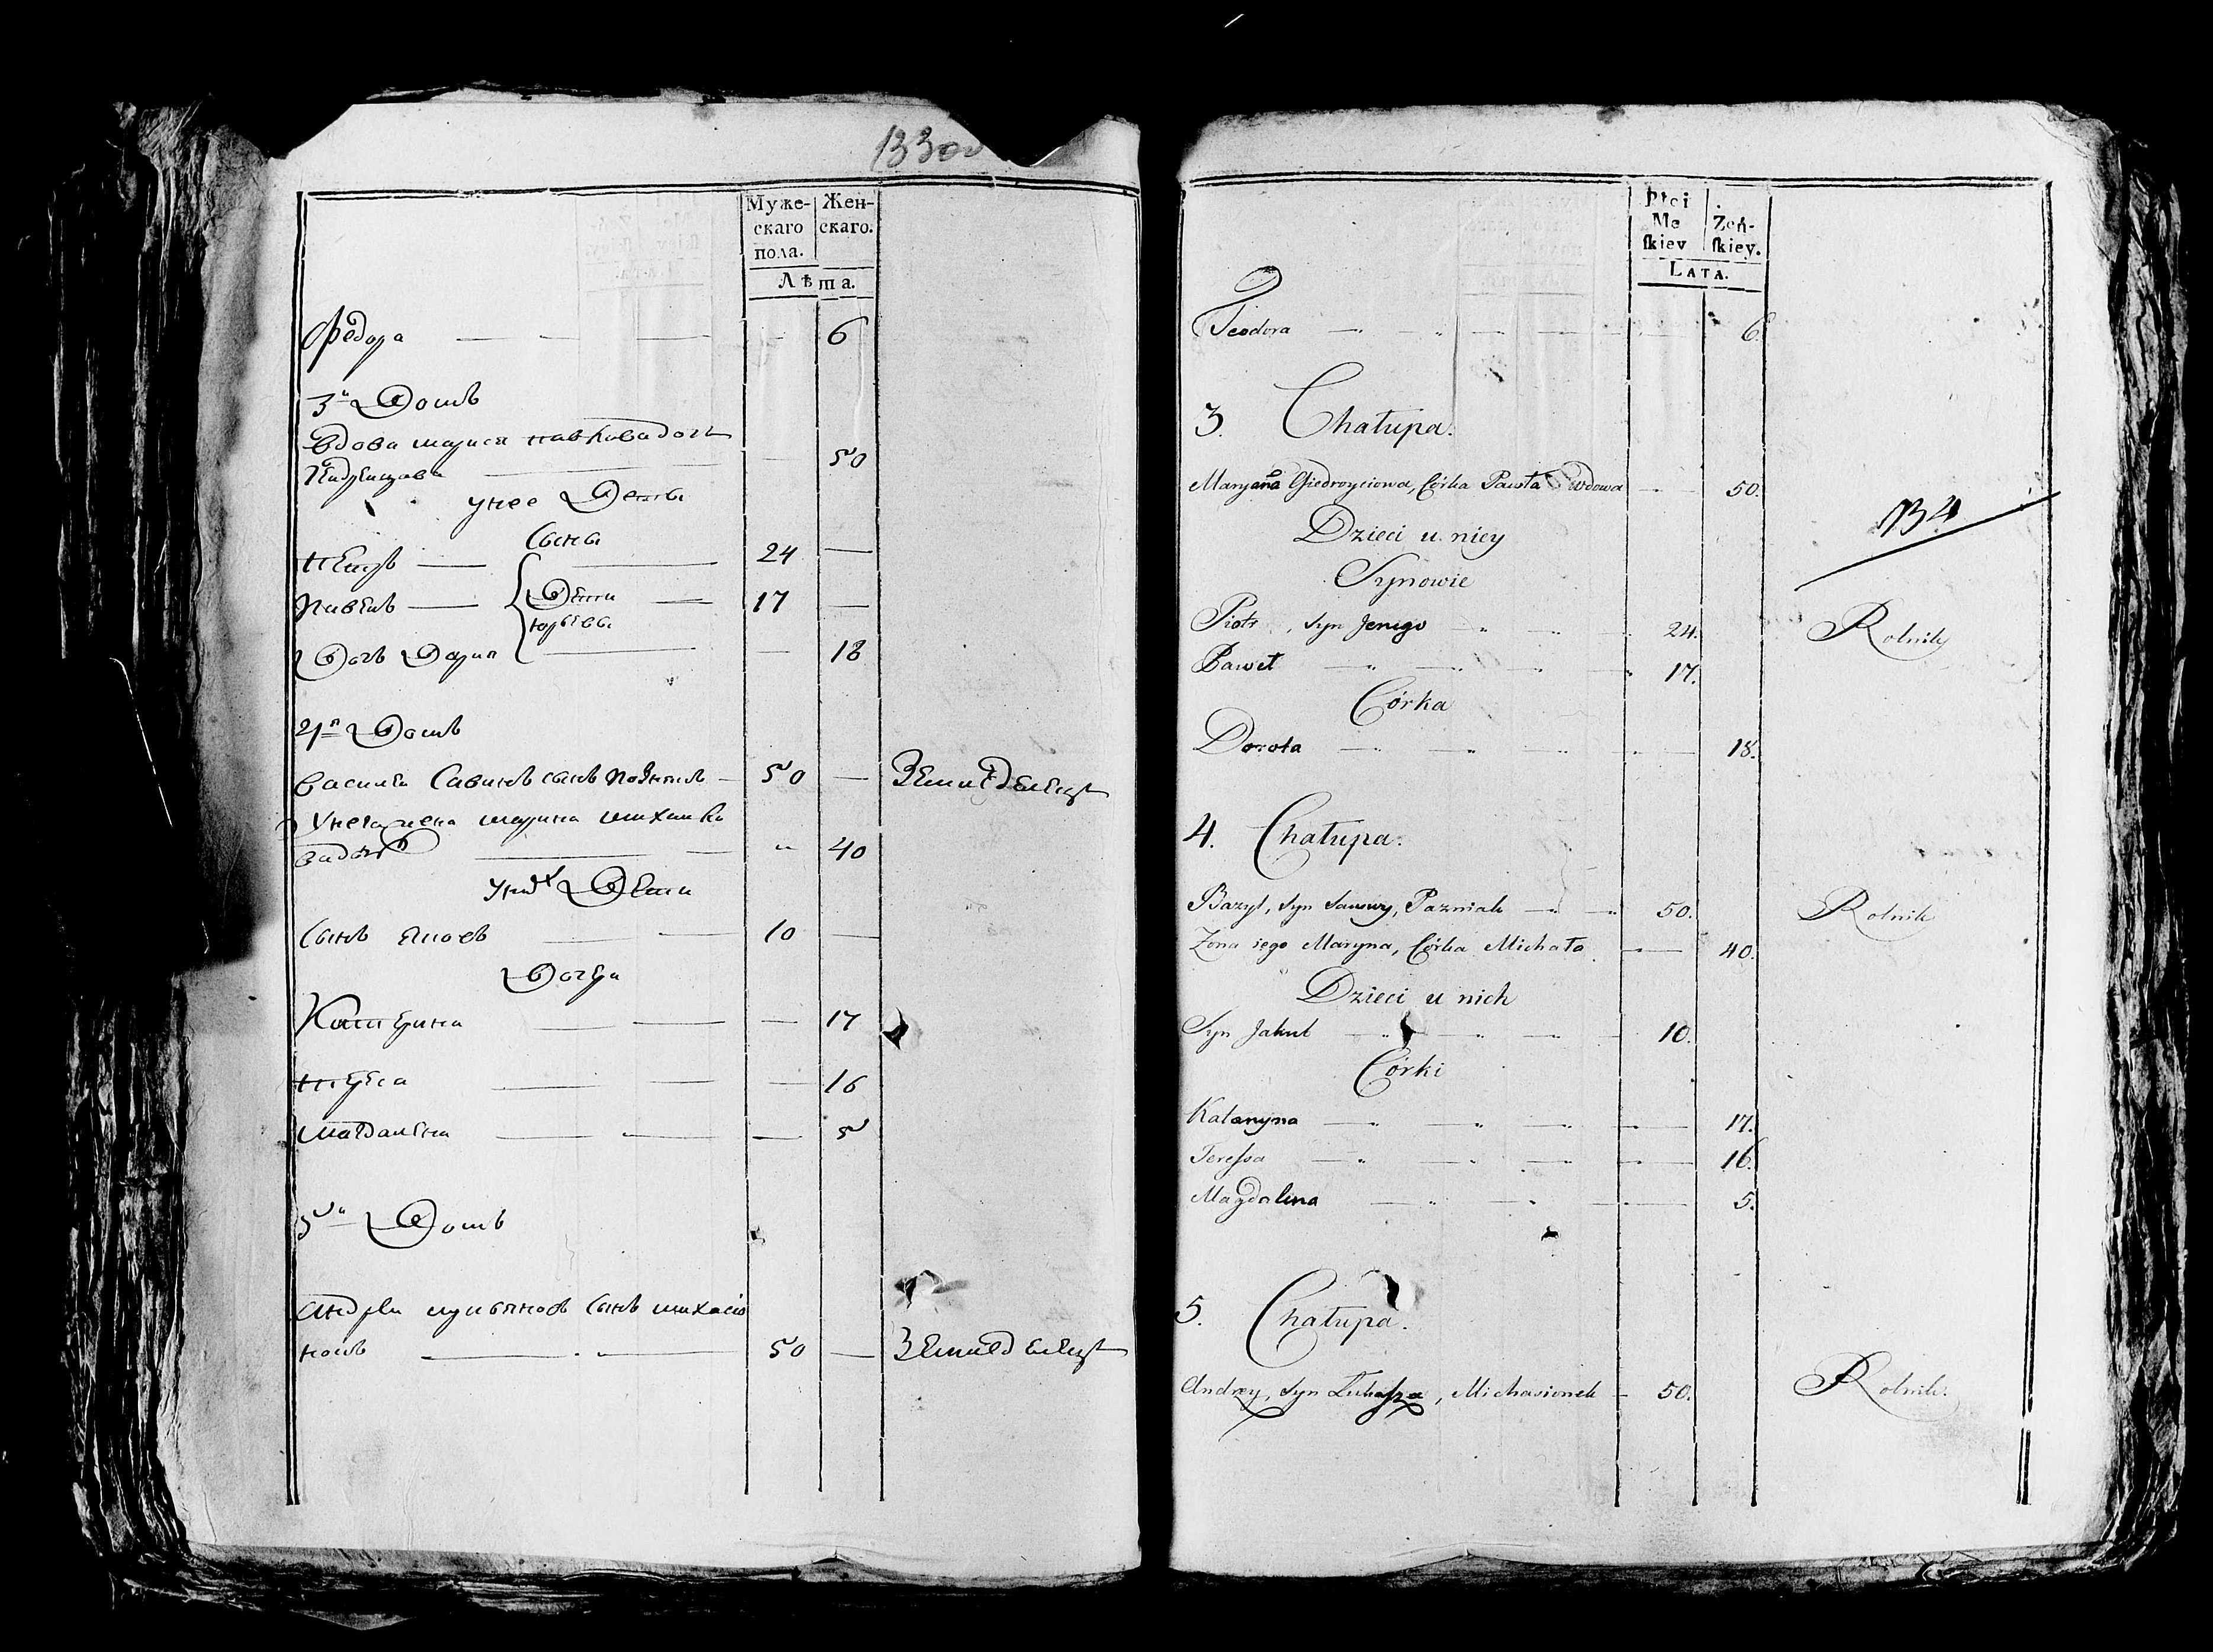 133об
Муже- Жен-
скаго скаго.
пола.
Лѣта.
Федора 6
3й Домъ
Вдова Марися Павлова дочь
50
у нее Дети
Сыны
Петръ 24
Павелъ Дети 17
Юрьевы
Дочь Дария 18
4й Домъ
Василей Савинъ сынъ Познякъ 50 Земледелецъ
У него жена Марина Михайло
ва дочь 40
У них Дети
Сынъ Яковъ 10
Дочери
Катерина 17
Тереса 16
Магдалена 5
5й Домъ
Андрей Лукьяновъ сынъ Михасіо
нокъ 50 Земледелецъ
Płci
Mę Żeń-
ſkiey ſkiey.
LATA.
Teodora 6.
3. Chałupa.
Maryana Giedroyciowa, Córka Pawła Wdowa 50.
134
Dzieci u niey
Synowie
Piotr, Syn Jerzego 24. Rolnik
Paweł 17.
Córka
Dorota 18.
4. Chałupa.
Bazyl, Syn Sawwy, Pazniak 50. Rolnik
Żona iego Maryna, Córka Michała 40.
Dzieci u nich
Syn Jakub 10.
Córki
Katarzyna 17.
Tereſsa 16.
Magdalena 5.
5. Chałupa.
Andrzey, Syn Łukaſza, Michasionek 50. Rolnik.